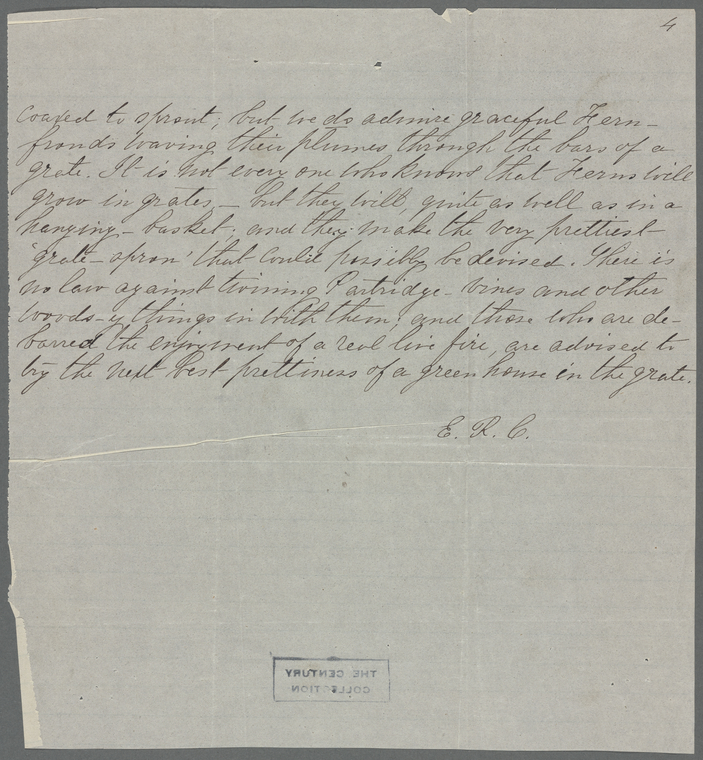 4
coaxed to sprout; but we do admire graceful Fern-
fronds waving their plumes through the bars of a
grate. It is not every one who knows that Ferns will
grow in grates, – but they will, quite as well as in a
hanging-basket; and they make the very prettiest
'grate-apron' that could possibly be devised. There is
no law against twining Partridge-vines and other
woods-y things in with them; and those who are de-
barred the enjoyment of a real live fire, are advised to
try the next best prettiness of a green house in the grate.
E. R. C.
THE CENTURY
COLLECTION